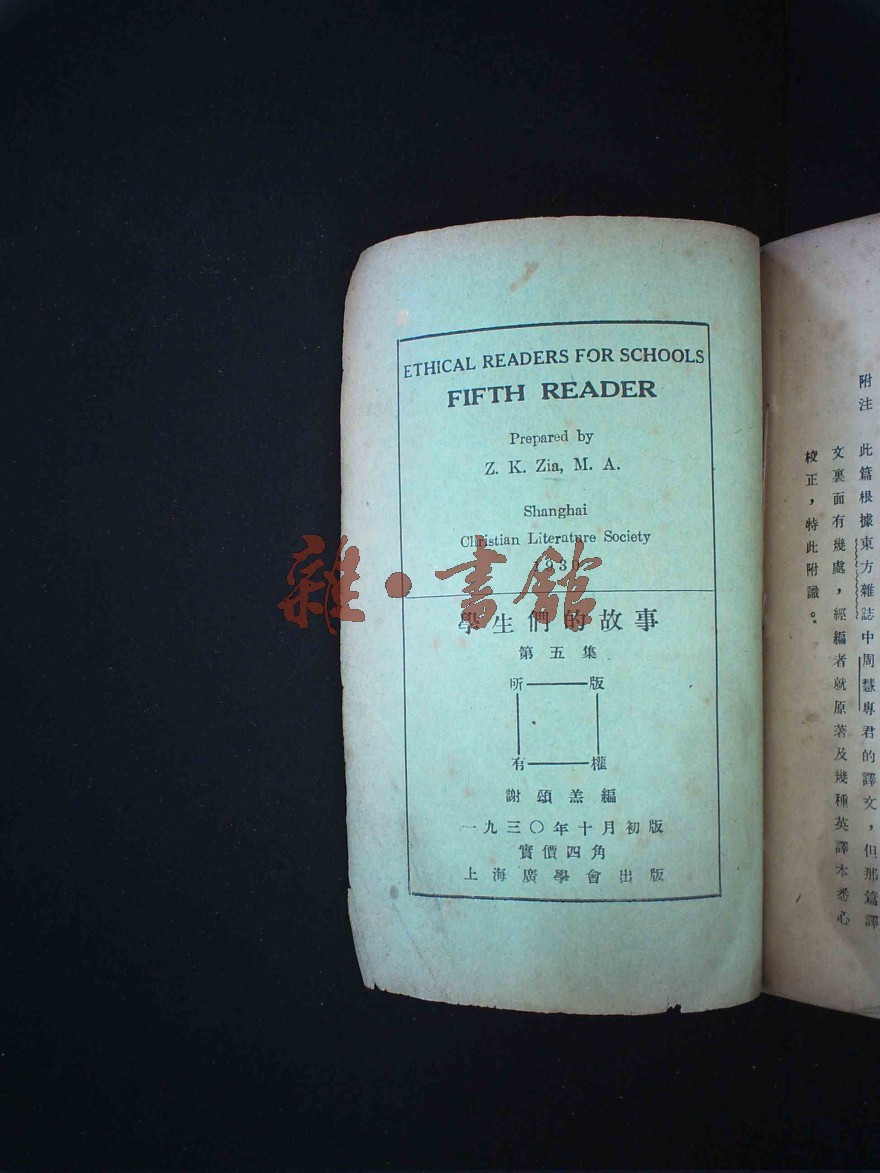 ETHICAL READERS FOR SCHOOLS
FIFTH READER
Prepared by
Z. K. Zia, M. A.
Shanghai
Christian Literature Society
1930
學生們的故事
第五集
所 版
有 權
謝頌羔編
一九三〇年十月初版
實價四角
上海廣學會出版
附注 此篇根據東方雜誌中周慧專君的譯文，但那篇譯
文裏面有幾處，經編者就原著及幾種英譯本悉心
校正，特此附識。
雜·書館